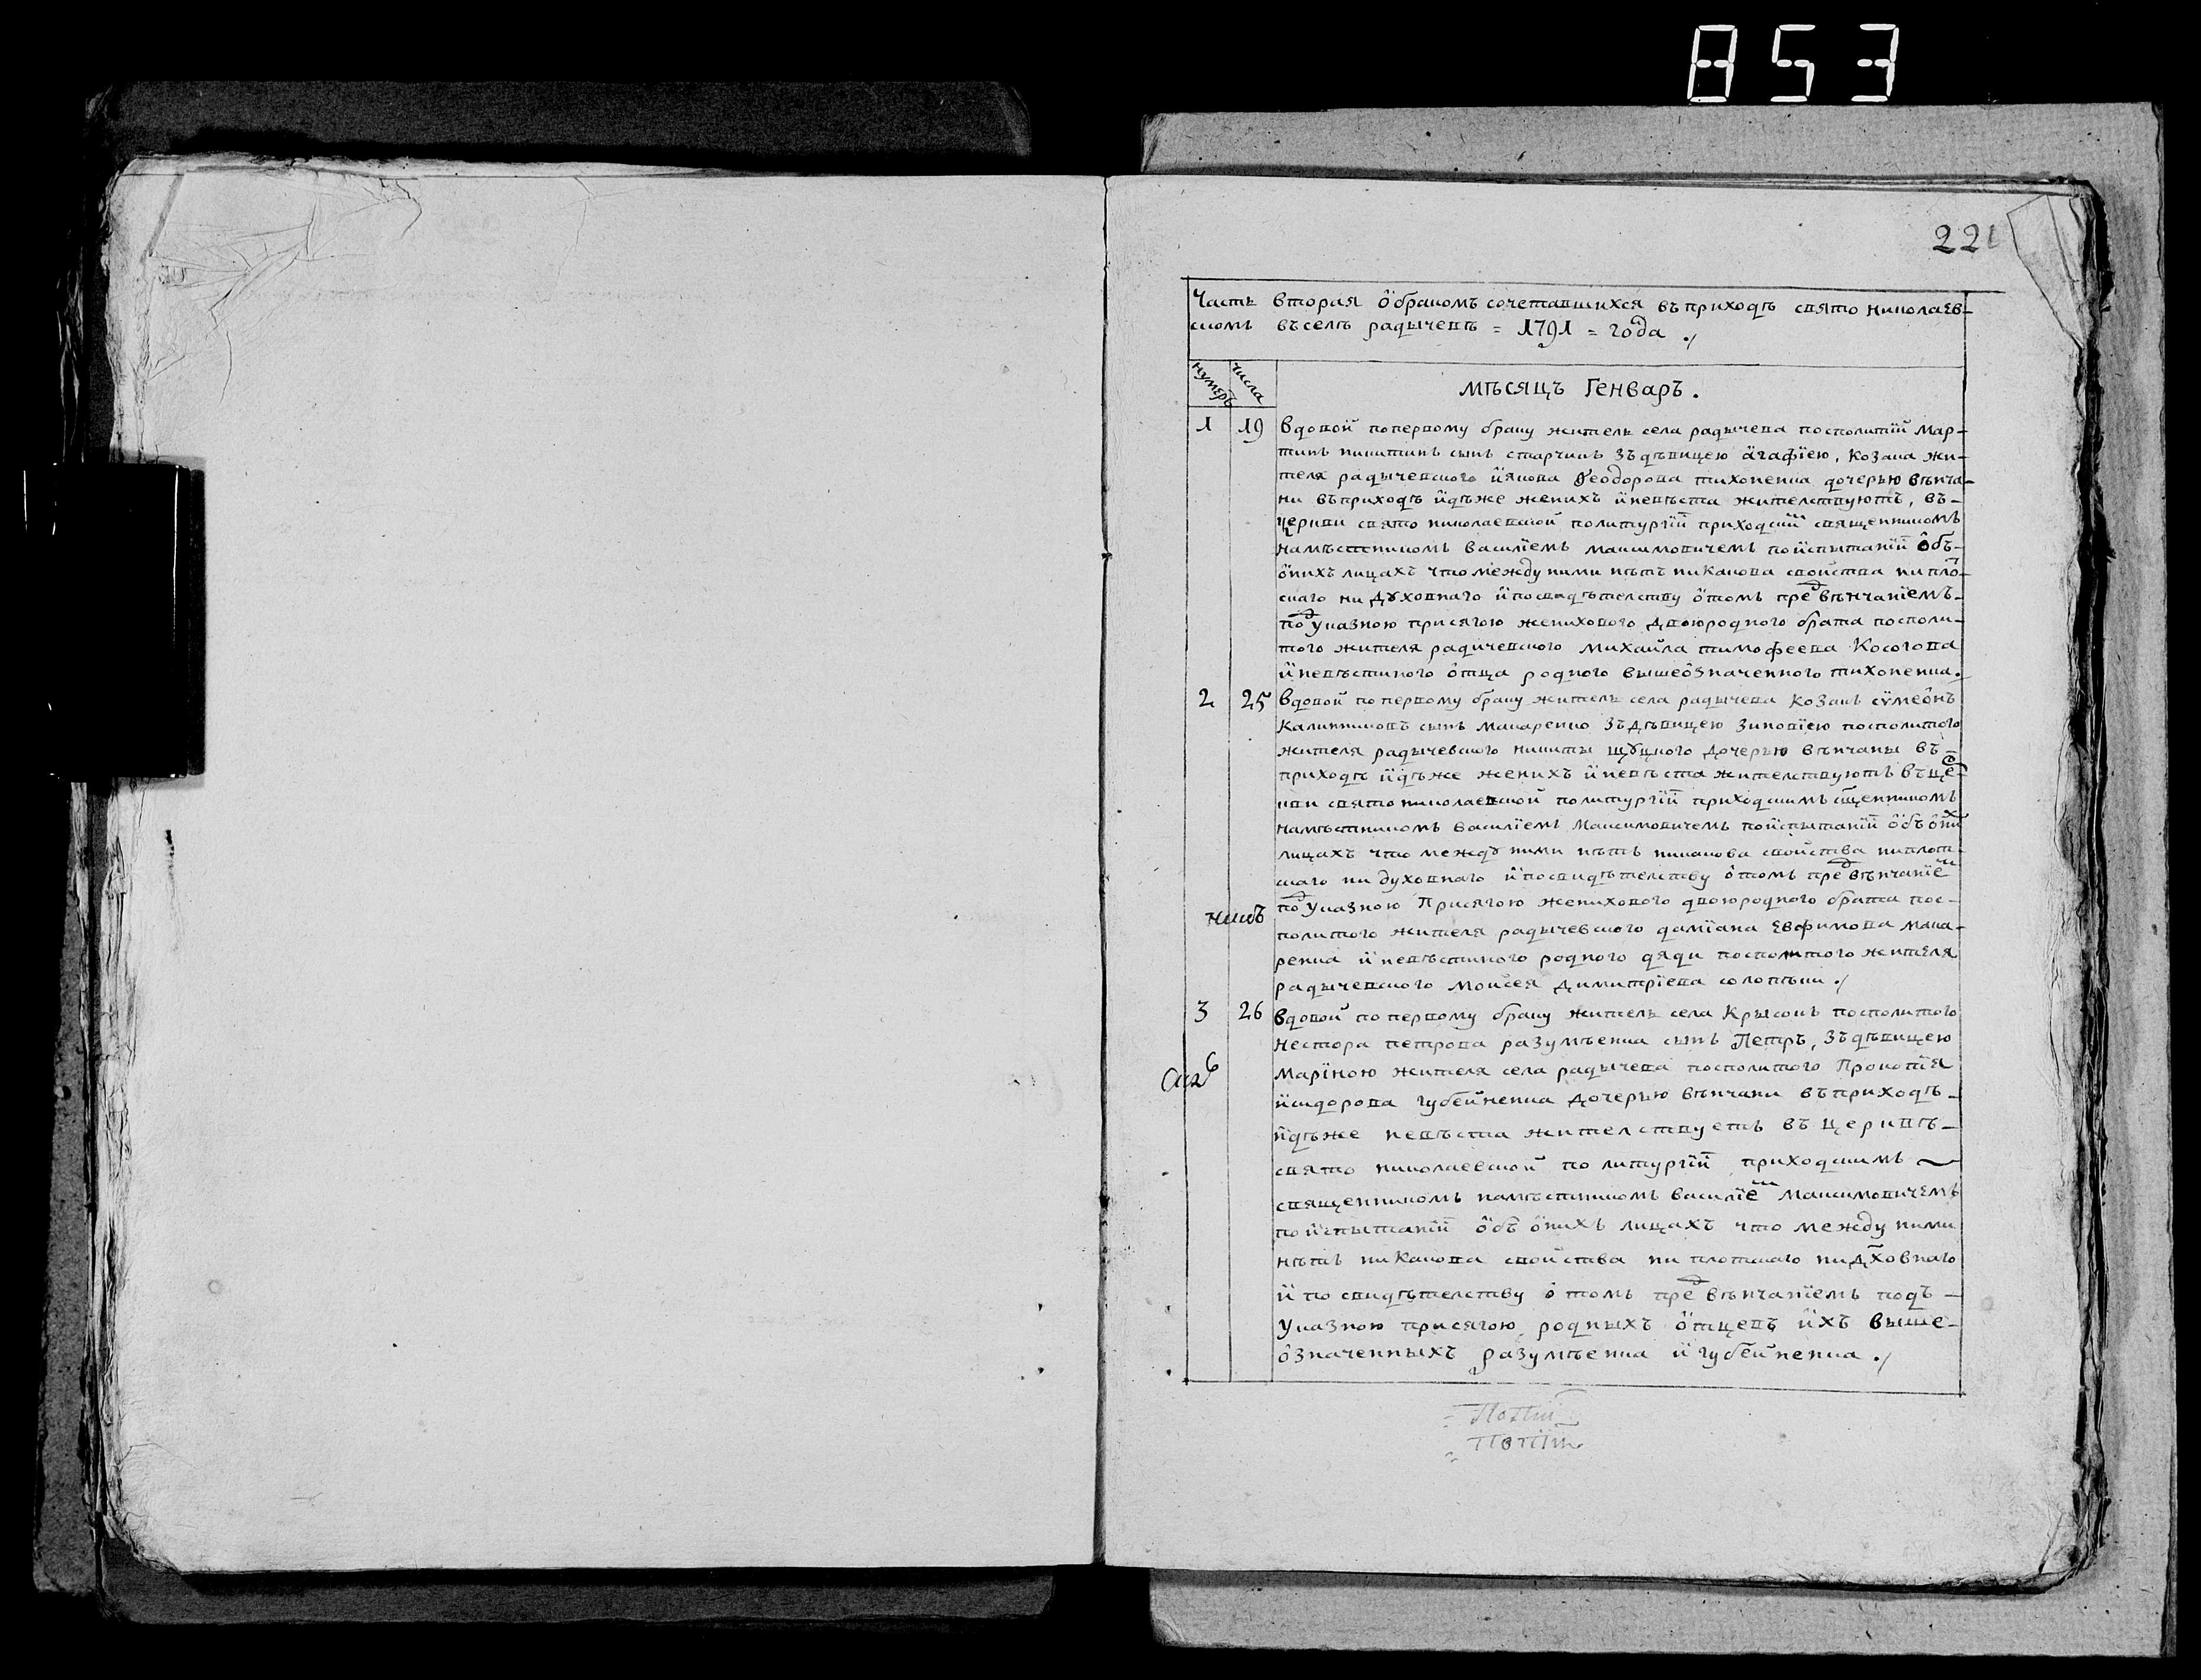 853
221
Часть вторая о бракомъ сочетавшихся въ приходѣ свято николаев-
скомъ въ селѣ радычевѣ = 1791 = года ./
нумеръ числа мѣсяцъ Генваръ.
1 19 вдовой по первому браку житель села радычева посполитїй мар-
тинъ никитинъ сынъ старчикъ зъ дѣвицею агафїею, козака жи-
теля радычевского иякова Ѳеодорова тихоненка дочерью вѣнча-
ни въ приходѣ идѣже женихъ и невѣста жителствуютъ, въ-
церкви свято николаевской по литургїи приходскїм священникомъ
намѣстникомъ василїемъ максимовичемъ по испытанїи объ-
оныхъ лицахъ что между ними нѣтъ никакова свойства ни плот-
скаго ни духовнаго и по свидѣтелству о томъ пред вѣнчанїемъ-
под указною присягою женихового двоюродного брата посполи-
того жителя радичевского михаила тимофеева Косогова
и невѣстиного отца родного вышеозначенного тихоненка.
2 25 вдовой по первому браку житель села радычева козакъ сѵмеонъ
Калинниковъ сынъ макаренко зъ дѣвицею зиновїею посполитого
жителя радычевского никиты щуцкого дочерью вѣнчаны въ-
приходѣ идѣже женихъ и невѣста жителствуютъ въ цер-
кви свято николаевской по литургїи приходскимъ сщенникомъ
намѣстникомъ василїемъ максимовичемъ по испытанїи объ оних
лицахъ что между ними нѣтъ никакова свойства ни плот-
скаго ни духовнаго и по свидѣтелству о томъ пред вѣнчанїем
под указною Присягою женихового двоюродного брата пос-
политого жителя радычевского дамїана Евфимова мака-
ренка и невѣстиного родного дяди посполитого жителя
радычевского моисея димитрїева солопѣки ./
3 26 вдовой по первому браку житель села Крысокъ посполитого
нестора петрова разумѣенка сынъ Петръ, зъ дѣвицею
марїною жителя села радычева посполитого Прокопїя
исидорова губейненка дочерью вѣнчани въ приходѣ-
идѣже невѣста жителствуетъ въ церквѣ-
свято николаевской по литургїи приходскимъ
священникомъ намѣстникомъ василїем максимовичемъ
по испытанїи объ онихъ лицахъ что между ними
нѣтъ никакова свойства ни плотскаго ни дховнаго
и по свидѣтелству о томъ пред вѣнчанїемъ подъ-
указною присягою родныхъ отцевъ ихъ выше-
означенныхъ разумѣенка и губейненка ./